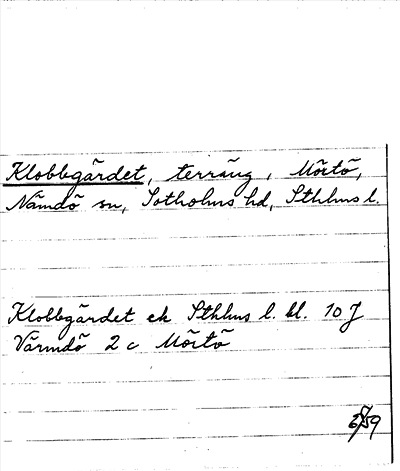 Klobbgärdet, terräng, Mörtö,
Nämdö sn, Sotholms hd, Sthlms l.
Klobbgärdet ek Sthlms l. bl. 10 J
Värmdö 2 c Mörtö